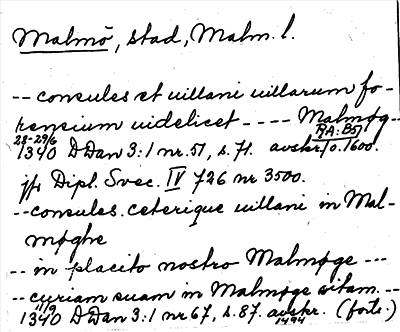 Malmö, stad, Malm. l.
-- consules et uillani uillarum fo-
rensium uidelicet ---- Malmøg--
28-29/6 RA: B5
1340 DDan 3:1 nr. 51, s. 71. avskr. fo. 1600.
jfr Dipl. Svec. IV 726 nr 3500.
-- consules. ceterique uillani in Mal-
møghe
-- in placito nostro Malmøge ---
-- curiam suam in Malmøge sitam. --
1340 DDan 3:1 nr 67, s. 87. avskr. 1494 (forts.)